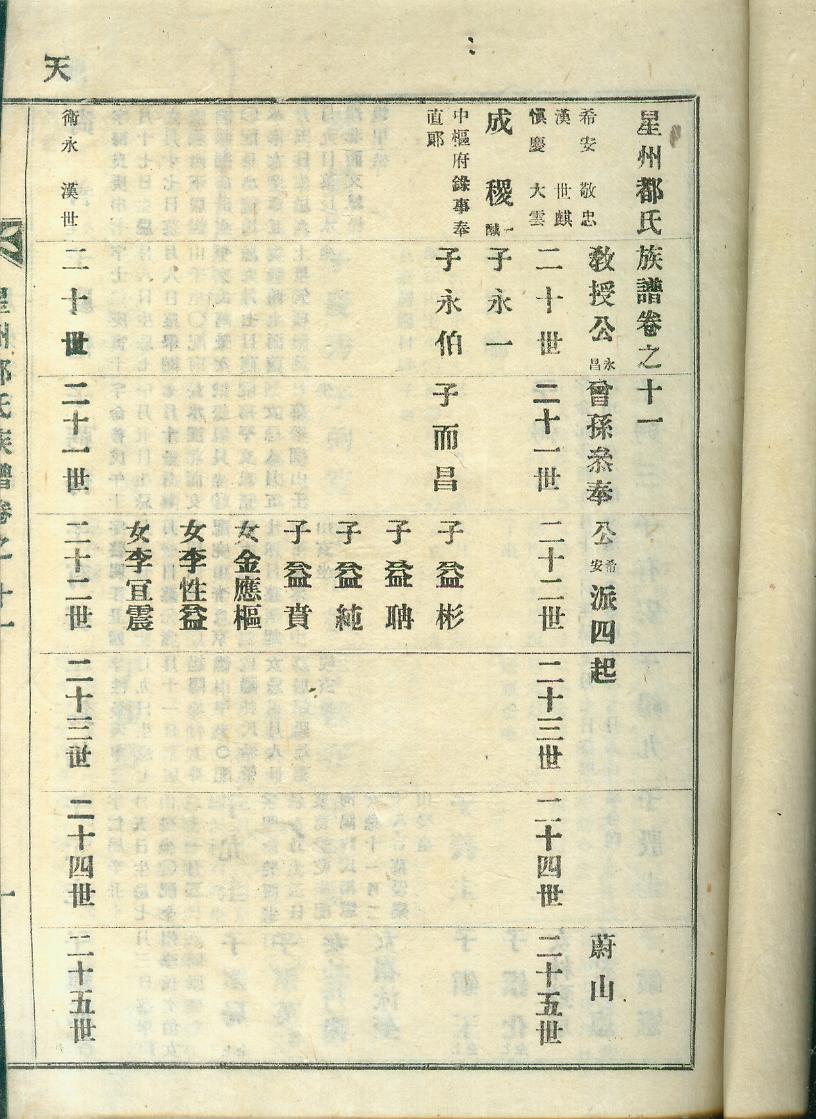 天
星州都氏族譜卷之十一
希安 敬忠
漢 世麒
愼慶 大雲
教授公永昌曾孫叅奉公希安派四起 蔚山
二十世 二十一世 二十二世 二十三世 二十四世 二十五世
成稷 子永一
中樞府錄事奉直郞
子永伯 子而昌 子益彬
子益聃
子益純
子益賁
女金應樞
女李性益
女李宜震
衛永 漢世
二十世 二十一世 二十二世 二十三世 二十四世 二十五世
星州都氏族譜卷之十一
一